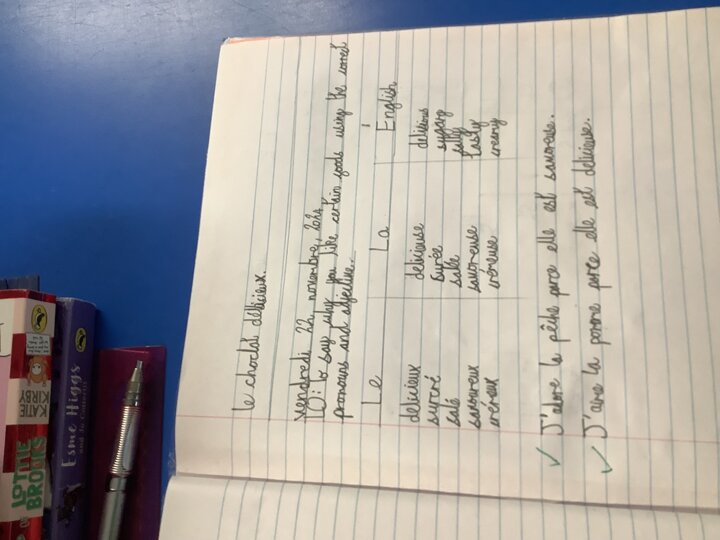 le choclat délicieux.
vendredi 22 novembre, 2024
LO: to say why you like certain foods using the correct
pronouns and adjective.
Le La English
delicieux delicieuse delicious
sucré surée sugary
salé salée salty
savoureux savoureuse tasty
crémeux crémeuse creamy
✓ J'adore la pêche parce elle est savoreuse.
✓ J'aime la pomme parce elle est delicieuse.
LOTTIE BROOKS
KATIE KIRBY
Esme Higgs